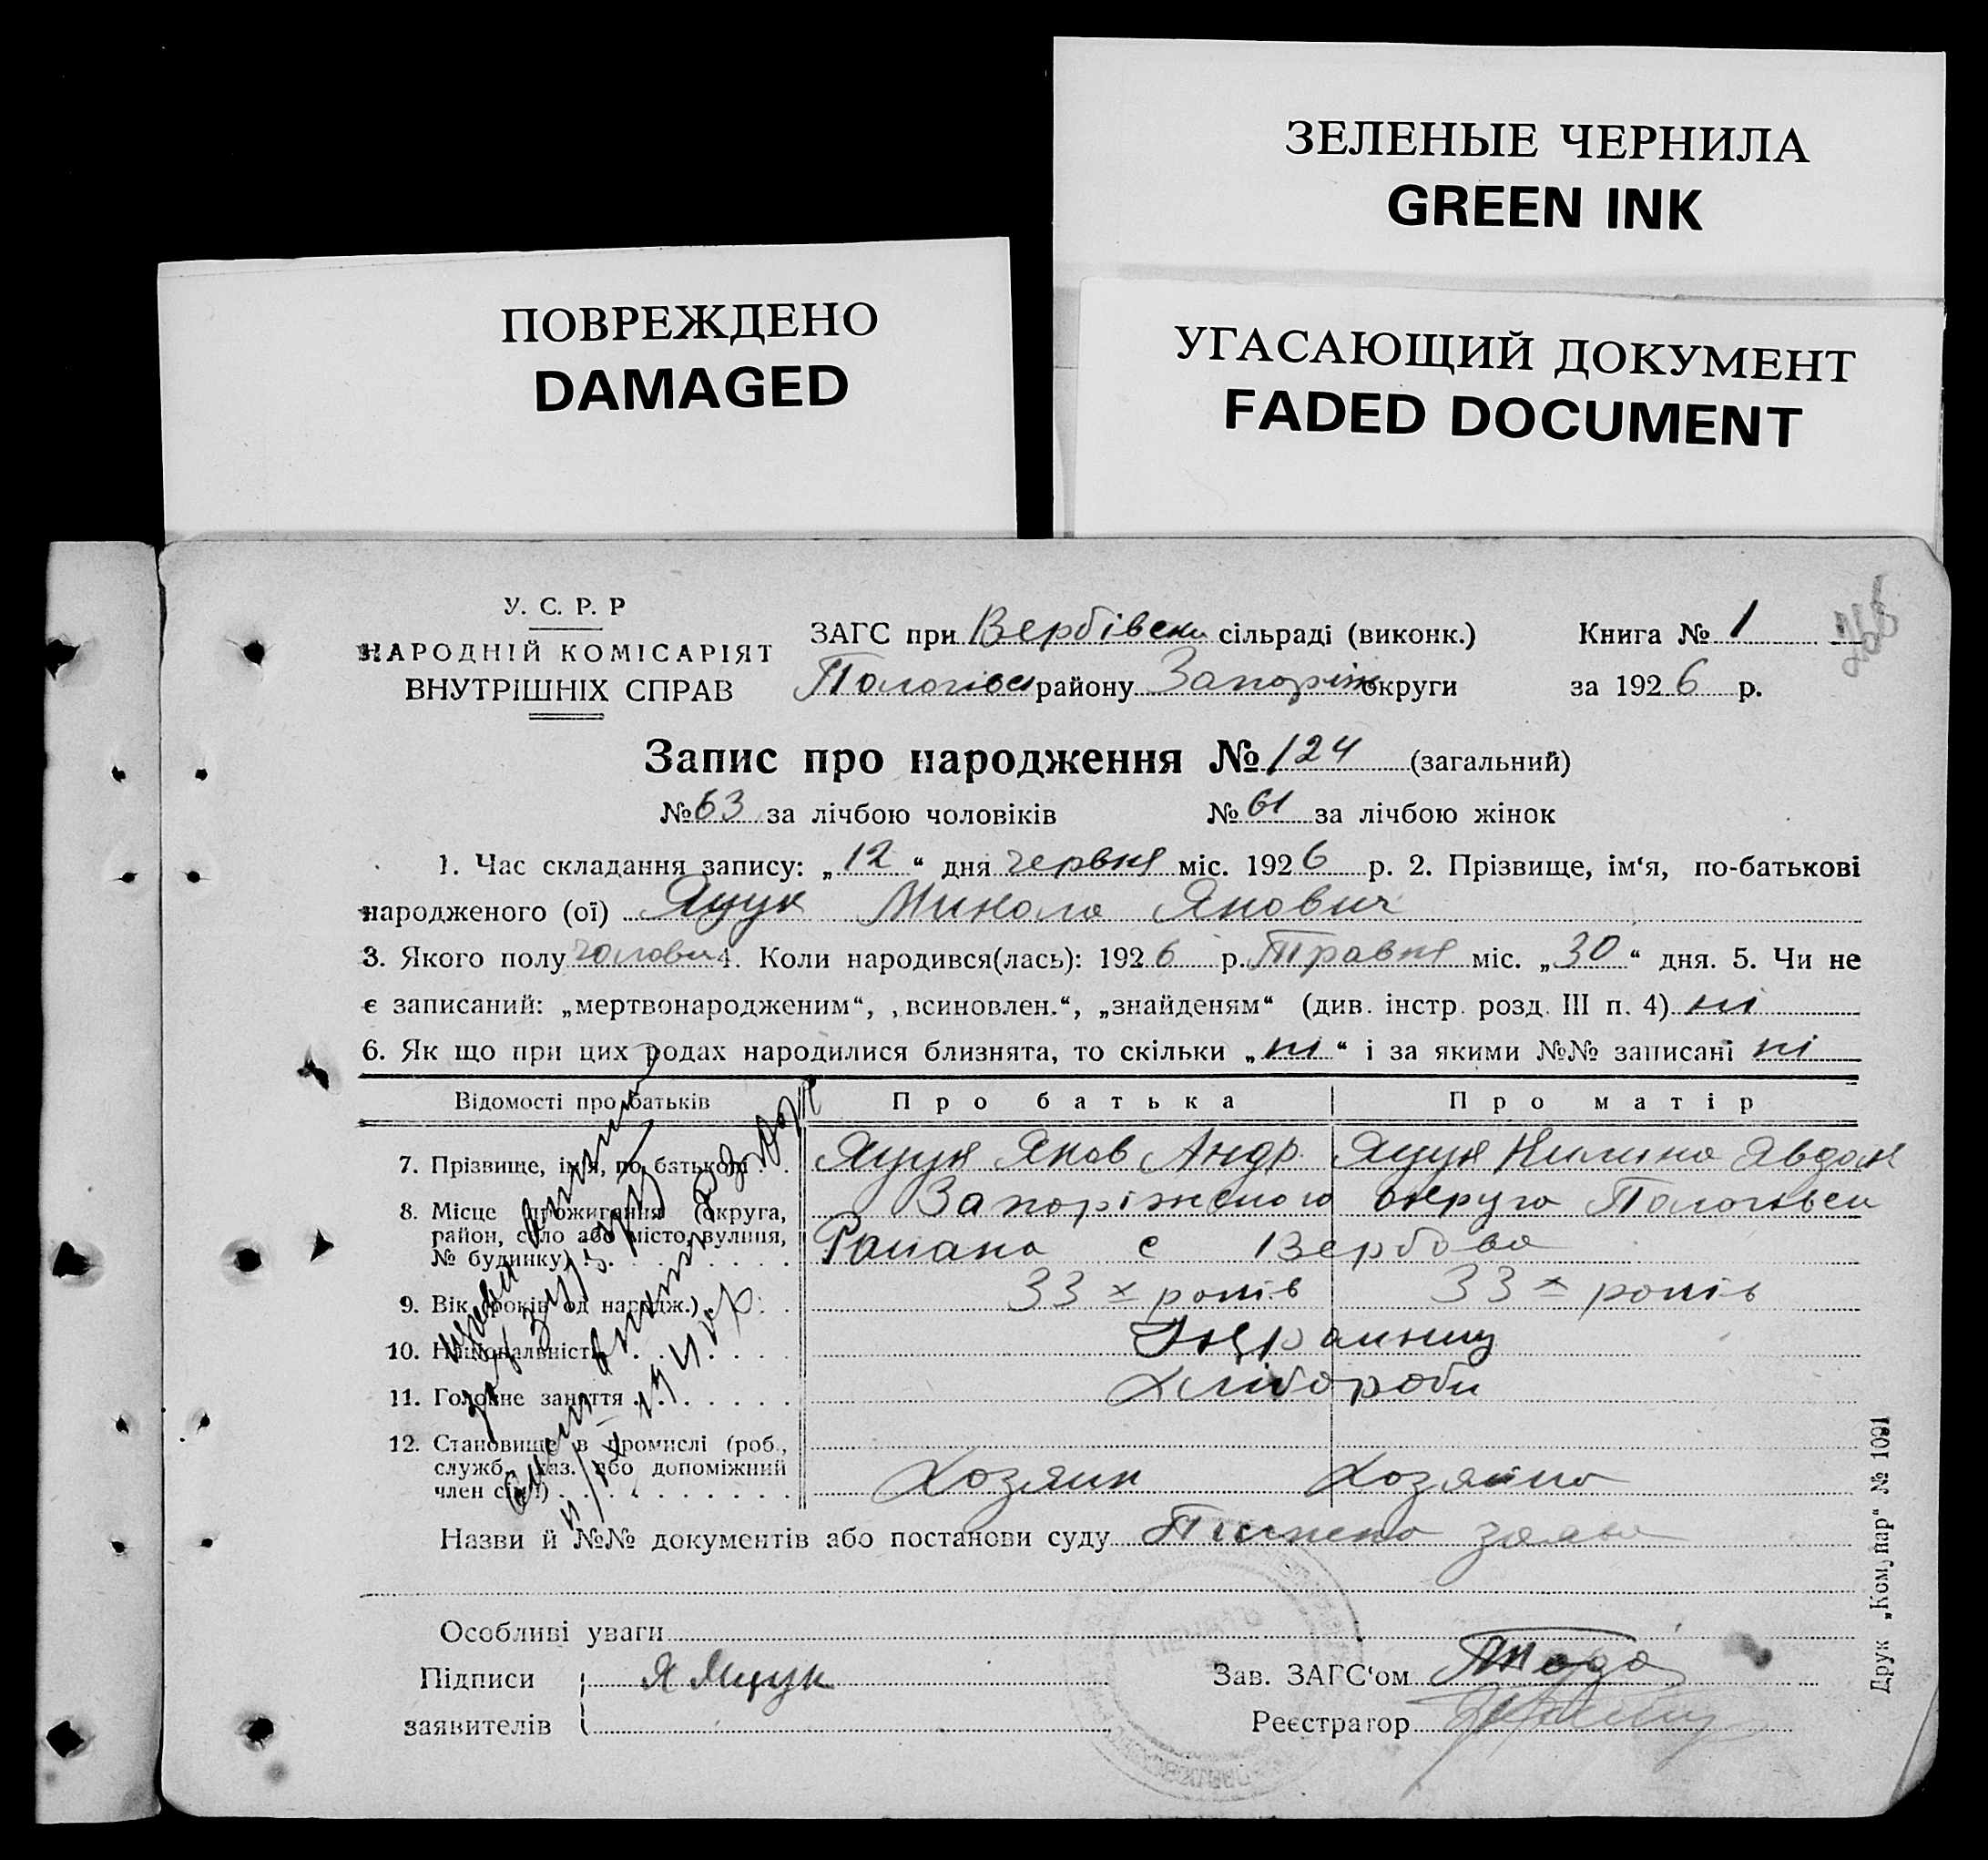 ЗЕЛЕНЫЕ ЧЕРНИЛА
GREEN INK
ПОВРЕЖДЕНО
DAMAGED
УГАСАЮЩИЙ ДОКУМЕНТ
FADED DOCUMENT
У. С. Р. Р
НАРОДНІЙ КОМІСАРІЯТ
ВНУТРІШНІХ СПРАВ
ЗАГС при Вербівськ сільраді (виконк.) Книга № 1
Пологівськ району Запоріж округи за 1926 р.
Запис про народження № 124 (загальний)
№ 63 за лічбою чоловіків № 61 за лічбою жінок
1. Час складання запису: „12“ дня червня міс. 1926 р. 2. Прізвище, ім‘я, по-батькові
народженого (ої) Яцук Микола Якович
3. Якого полу чолови 4. Коли народився(лась): 1926 р. Травня міс. „30“ дня. 5. Чи не
є записаний: „мертвонародженим“, „всиновлен.“, „знайденям“ (див. інстр. розд. III п. 4) ні
6. Як що при цих родах народилися близнята, то скільки „ні“ і за якими №№ записані ні
Відомості про батьків Про батька Про матір
7. Прізвище, ім‘я, по батькові Яцук Яков Андр. Яцук Килина Явдок
8. Місце проживання (округа, Запоріжського округа Пологівськ
район, село або місто, вулиця, Района с Вербова
№ будинку)
9. Вік (років од народж.) 33 х років 33 х років
10. Національність Українці
11. Головне заняття Хлібороби
12. Становище в промислі (роб.,
служб., хаз. або допоміжний Хозяин Хозяйка
член сім‘ї)
Назви й №№ документів або постанови суду
Особливі уваги
Підписи Я Яцук Зав. ЗАГС‘ом
заявителів Реєстратор
Друк „Комунар“ № 1091